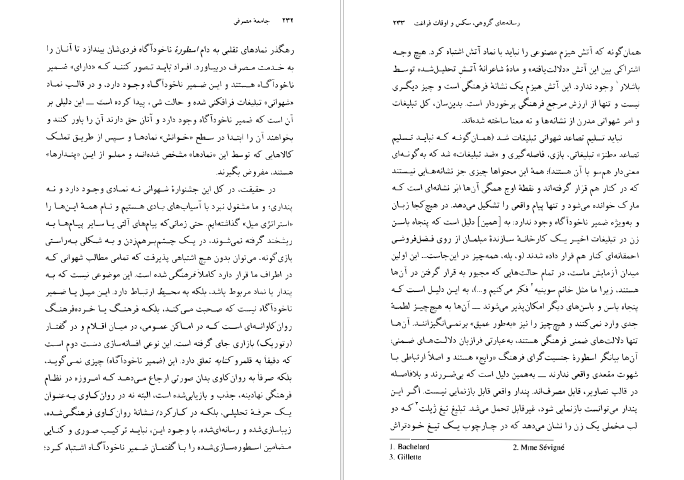 رسانه‌های گروهی، سکس و اوقات فراغت ۲۳۳
همان‌گونه که آتش هیزم مصنوعی را نباید با نماد آتش اشتباه کرد. هیچ وجه
اشتراکی بین این آتش «دلالت‌یافته» و مادهٔ شاعرانهٔ آتش تحلیل‌شده توسط
باشلار۱ وجود ندارد. این آتش هیزم یک نشانهٔ فرهنگی است و چیز دیگری
نیست و تنها از ارزش مرجع فرهنگی برخوردار است. بدین‌سان، کل تبلیغات
و امر شهوانی مدرن از نشانه‌ها و نه معنا ساخته شده‌اند.
نباید تسلیم تصاعد شهوانی تبلیغات شد (همان‌گونه که نباید تسلیم
تصاعد «طنز» تبلیغاتی، بازی، فاصله‌گیری و «ضد تبلیغات» شد که به‌گونه‌ای
معنی‌دار هم‌سو با آن هستند)؛ همهٔ این محتواها چیزی جز نشانه‌هایی نیستند
که در کنار هم قرار گرفته‌اند و نقطهٔ اوج همگی آن‌ها ابَر نشانه‌ای است که
مارک خوانده می‌شود و تنها پیام واقعی را تشکیل می‌دهد. در هیچ‌کجا زبان
و به‌ویژه ضمیر ناخودآگاه وجود ندارد: به [همین] دلیل است که پنجاه باسن
زن در تبلیغات اخیر یک کارخانهٔ سازندهٔ مبلمان از روی فضل‌فروشی
احمقانه‌ای کنار هم قرار داده شدند (و، بله، همه‌چیز در این‌جاست... این اولین
میدان آزمایش ماست، در تمام حالت‌هایی که مجبور به قرار گرفتن در آن‌ها
هستند، زیرا ما مثل خانم سوینیه۲ فکر می‌کنیم و...)، به این دلیل است که
پنجاه باسن و باسن‌های دیگر امکان‌پذیر می‌شوند ــ آن‌ها به هیچ‌چیز لطمهٔ
جدی وارد نمی‌کنند و هیچ‌چیز را نیز «به‌طور عمیق» برنمی‌انگیزانند. آن‌ها
تنها دلالت‌های ضمنی فرهنگی هستند، به‌عبارتی فرازبان دلالت‌های ضمنی:
آن‌ها بیانگر اسطورهٔ جنسیت‌گرای فرهنگ «رایج» هستند و اصلاً ارتباطی با
شهوت مقعدی واقعی ندارند ــ به‌همین دلیل است که بی‌ضررند و بلافاصله
در قالب تصاویر، قابل مصرف‌اند. پندار واقعی قابل بازنمایی نیست. اگر این
پندار می‌توانست بازنمایی شود، غیرقابل تحمل می‌شد. تبلیغ تیغ ژیلت۳ که دو
لب مخملی یک زن را نشان می‌دهد که در چارچوب یک تیغ خودتراش
1. Bachelard
2. Mme Sévigné
3. Gillette
۲۳۴ جامعهٔ مصرفی
رهگذر نمادهای تقلبی به دام اسطورهٔ ناخودآگاه فردی‌شان بیندازد تا آنان را
به خدمت مصرف دربیاورد. افراد باید تصور کنند که «دارای» ضمیر
ناخودآگاه هستند و این ضمیر ناخودآگاه وجود دارد، و در قالب نماد
«شهوانی» تبلیغات فرافکنی شده و حالت شی، پیدا کرده است ــ این دلیلی بر
آن است که ضمیر ناخودآگاه وجود دارد و آنان حق دارند آن را باور کنند و
بخواهند آن را ابتدا در سطح «خوانش» نمادها و سپس از طریق تملک
کالاهایی که توسط این «نمادها» مشخص شده‌اند و مملو از این «پندارها»
هستند، مفروض بگیرند.
در حقیقت، در کل این جشنوارهٔ شهوانی نه نمادی وجود دارد و نه
پنداری؛ و ما مشغول نبرد با آسیاب‌های بادی هستیم و نام همهٔ این‌ها را
«استراتژی میل» گذاشته‌ایم. حتی زمانی‌که پیام‌های آلتی یا سایر پیام‌ها به
ریشخند گرفته نمی‌شوند، در یک چشم‌برهم‌زدن و به شکلی به‌راستی
بازی‌گونه، می‌توان بدون هیچ اشتباهی پذیرفت که تمامی مطالب شهوانی که
در اطراف ما قرار دارد کاملاً فرهنگی شده است. این موضوعی نیست که به
پندار یا نماد مربوط باشد، بلکه به محیط ارتباط دارد. این میل یا ضمیر
ناخودآگاه نیست که صحبت می‌کند، بلکه فرهنگ یا خرده‌فرهنگ
روان‌کاوانه‌ای است که در اماکن عمومی، در میان اقلام و در گفتار
(رتوریک) بازاری جای گرفته است. این نوعی افسانه‌سازی دست دوم است
که دقیقا به قلمرو کنایه تعلق دارد. این (ضمیر ناخودآگاه) چیزی نمی‌گوید،
بلکه صرفاً به روان‌کاوی بدان صورتی ارجاع می‌دهد که امروزه در نظام
فرهنگی نهادینه، جذب و بازیابی‌شده است، البته نه در روان‌کاوی به‌عنوان
یک حرفهٔ تحلیلی، بلکه در کارکرد/ نشانهٔ روان‌کاوی فرهنگی‌شده،
زیباسازی‌شده و رسانه‌ای‌شده. با وجود این، نباید ترکیب صوری و کنایی
مضامین اسطوره‌سازی‌شده را با گفتمان ضمیر ناخودآگاه اشتباه کرد؛